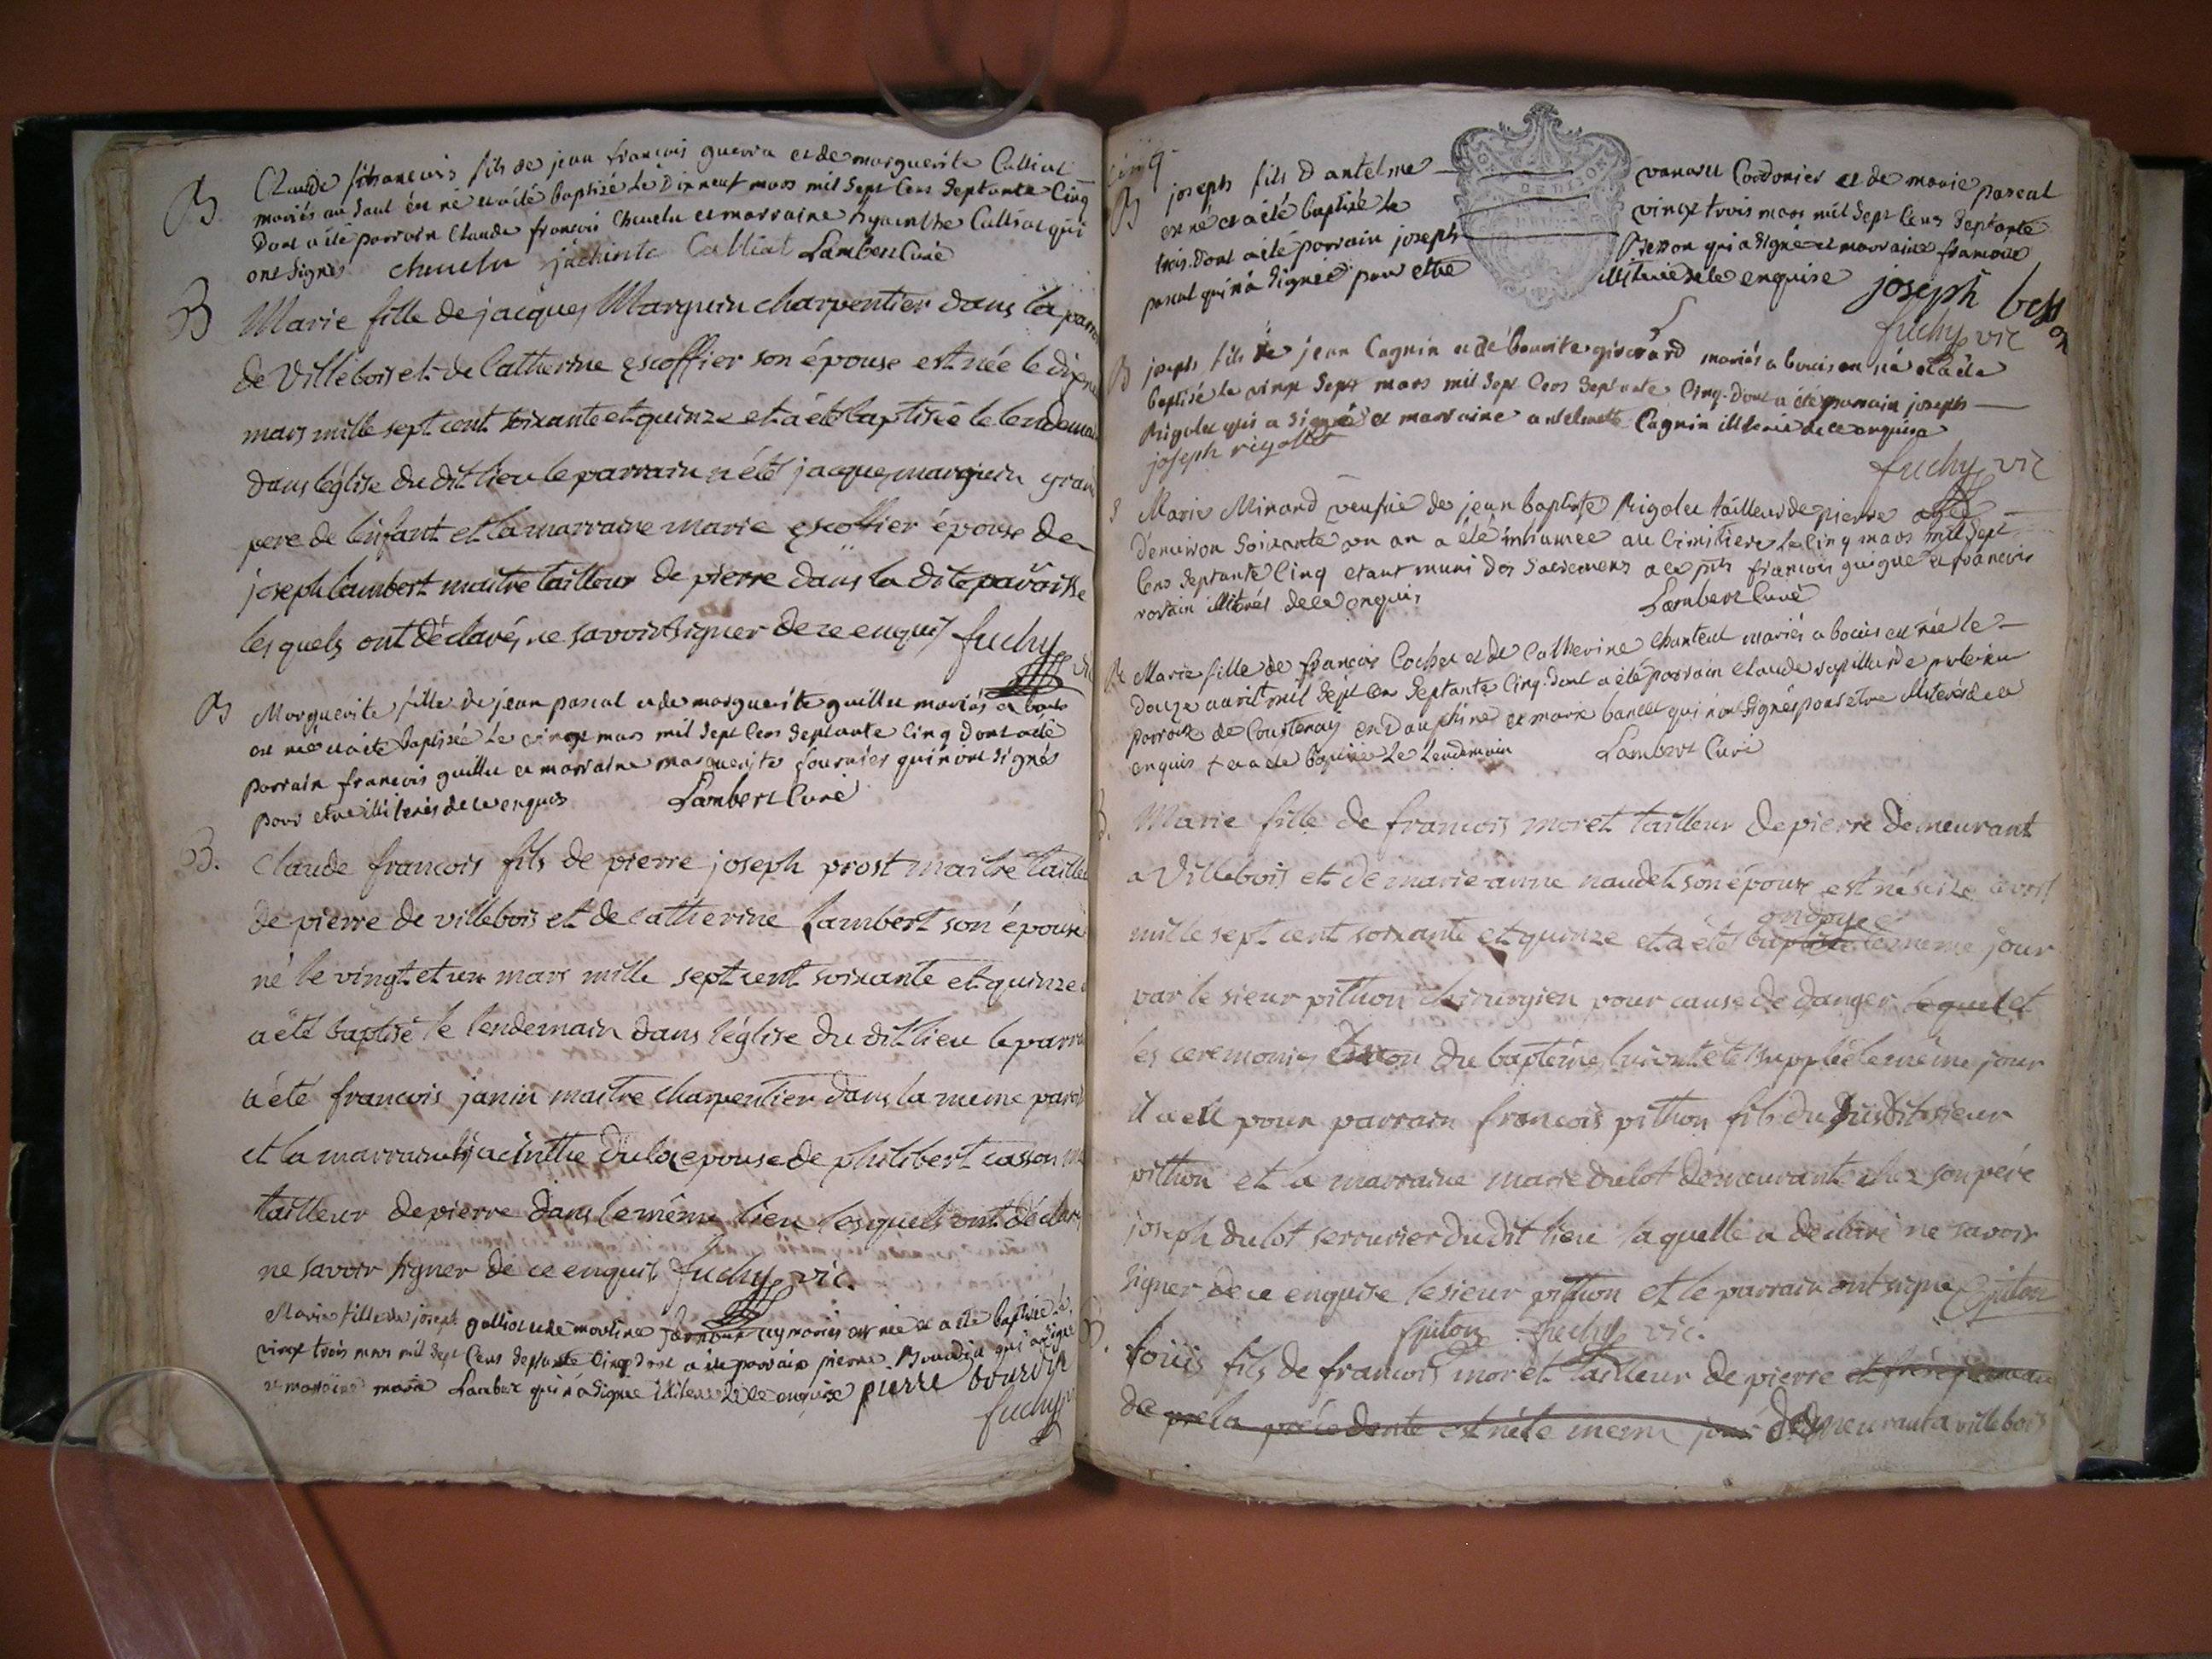 B. Claude francois fils de jean francois guerra et de marguerite Calliat
mariés au Saut est né et a été baptisé le Dix neuf mars mil Sept Cens Septante Cinq
Dont a été parrain Claude francois Chuclu et marraine hyacinthe Calliat qui
ont Signés chuclu jacinte Calliat Lambert Curé
B Marie fille de jacques Marguin charpentier dans la
de Villebois et de Catherine escoffier son épouse est née le
mars mille sept cent soixante et quinze et a été baptisée le
dans léglise du dit lieu le parrain a été jacque marguin
pere de lenfant et la marraine marie escoffier épouse de
joseph lambert maitre tailleur de pierre dans la dite paroisse
lesquels ont déclarés ne savoir signer de ce enquis fuchy
B Marguerite fille de jean pascal et de marguerite guillu mariés a bouis
est née et a été baptisée le vingt mars mil Sept Cens Septante Cinq Dont a été
parrain francois guillu et marraine marguerite fournier qui n'ont signés
pour etre illiterés de ce enquis Lambert Curé
B. Claude francois fils de pierre joseph prost maitre
de pierre de villebois et de catherine Lambert son épouse
né le vingt et un mars mille sept cent soixante et quinze
a été baptisé le lendemain dans léglise du dit lieu le
a été francois janin maitre charpentier dans la meme
et la marraine hiacinthe dulac epouse de philibert casson
tailleur de pierre dans le même lieu lesquels ont
ne savoir signer de ce enquis fuchy vic.
Marie fille de joseph galliot et de mariés est née et a été baptisée le
vingt trois mars mil Sept Cens Septante Cinq Dont a été parrain pierre Bourdin qui a signé
et marraine marie Lambert qui n'a signé illiterée de ce enquise pierre bourdin
fuchy
cinq
B joseph fils d antelme vanarel Cordonier et de marie pascal
est né et a été baptisé le vingt trois mars mil Sept Cens Septante
Dont a été parrain joseph Besson qui a Signé et marraine francoise
pascal qui n'a Signée pour etre illiterée de ce enquise joseph besson
fuchy vic
B joseph fils de jean Cagnin et de girard mariés a bouis en né et a été
baptisé le vingt Sept mars mil Sept Cens Septante Cinq. Dont a été parrain joseph
Rigolet qui a signé et marraine antelmette Cagnin illiterée de ce enquise
joseph rigollet
fuchy vic
S Marie Minand veufue de jean baptiste Rigolet tailleur de pierre agée
D'environ Soixante un an a été inhumée au Cimitiere le Cinq mars mil Sept
Cens Septante Cinq etant muni des Sacremens a ce pnts francois guigue et francois
illiterés de ce enquis Lambert Curé
B Marie fille de francois Cochet et de Catherine Chanteul mariés a bouis est née le
Douze avril mil Sept Cen Septante Cinq. Dont a été parrain Claude
parroise de Courtenay en Dauphiné et marie qui n'ont Signés pour etre illiterés de ce
enquis + et a été baptisée le Lendemain Lambert Curé
B. Marie fille de francois moret tailleur de pierre demeurant
a Villebois et de marie anne naudet son épouse est né seize avril
ondoyeé
mille sept cent soixante et quinze et a été baptisée le meme jour
par le sieur pithon chirurgien pour cause de danger lequel et
les ceremonies du baptême lui ont été suppléé le même jour
il a eu pour parrain francois pithon fils du sieur
pithon et la marraine marie dulot demeurante chez son pére
joseph dulot serrurier du dit lieu laquelle a déclaré ne savoir
signer de ce enquise le sieur pithon et le parrain ont signé piton
fpiton fuchy vic.
B. Louis fils de francois moret tailleur de pierre et frere jumeau
de la précedente est né le meme jour demeurant a villebois